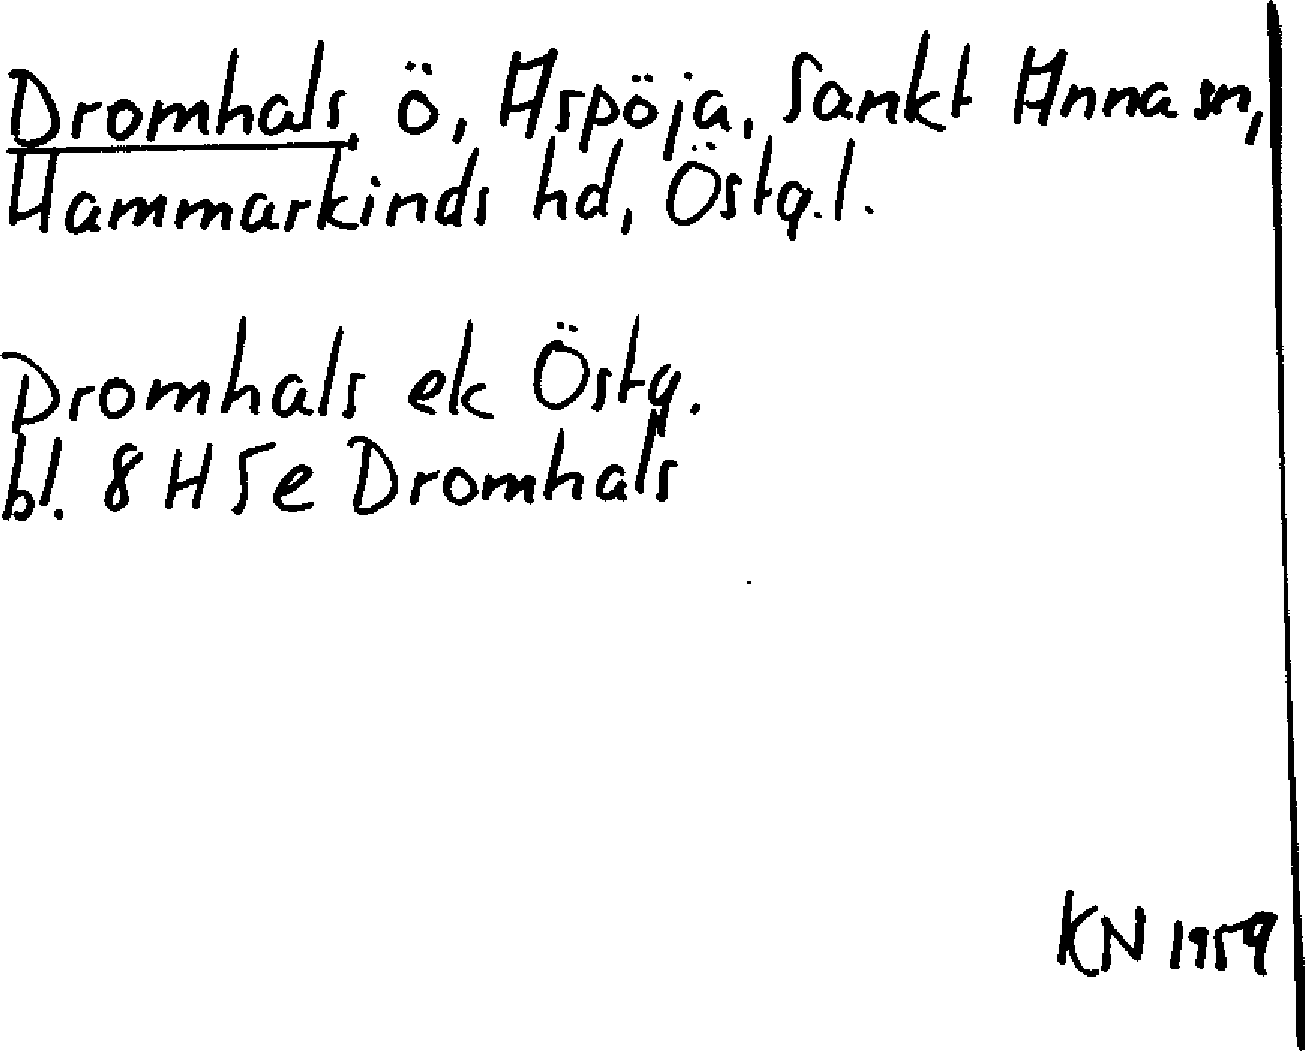 Dromhals, ö, Aspöja, Sankt Anna sn,
Hammarkinds hd, Östg.l.
Dromhals ek Östg.
bl. 8 H 5e Dromhals
KN 1959